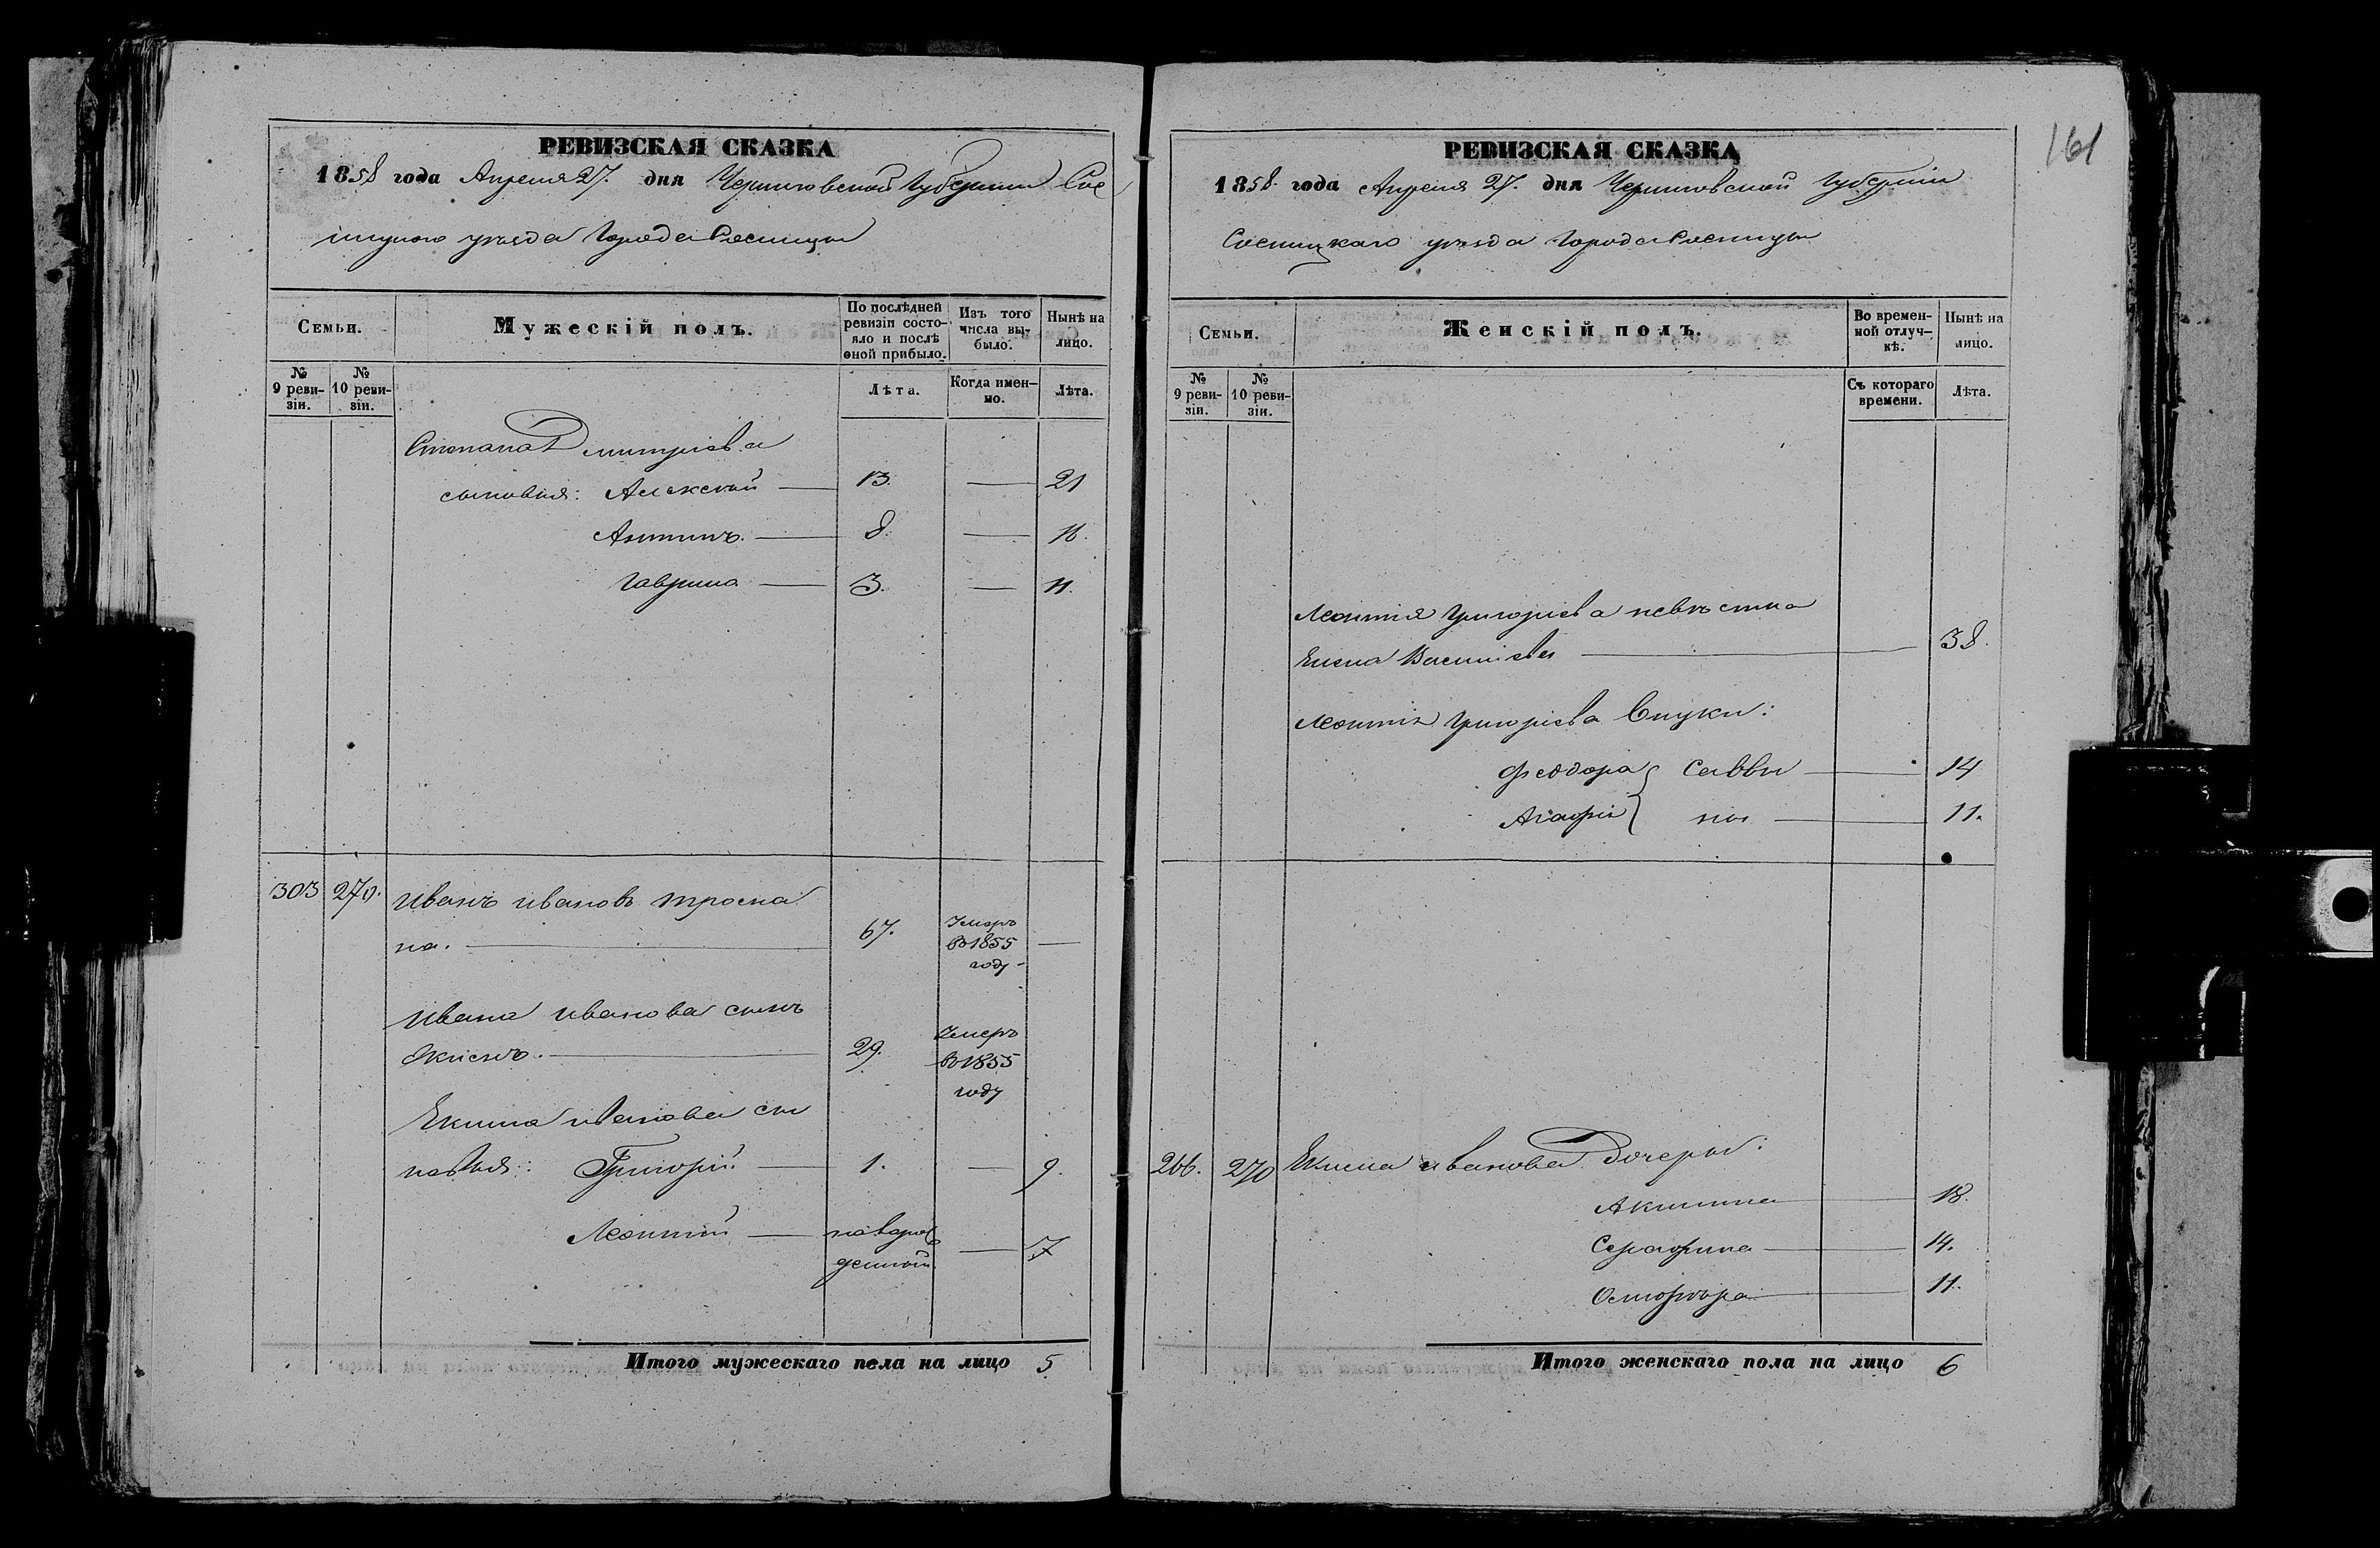 РЕВИЗСКАЯ СКАЗКА
1858 года Апреля 27. дня Черниговской Губернии Сос
ницкого уезда Города Сосницы
Семьи.
Мужескій полъ.
По послѣдней ревизіи состояло и послѣ оной прибыло.
Изъ того числа выбыло.
Нынѣ на лицо.
№ 9 ревизіи.
№ 10 ревизіи.
Лѣта.
Когда именно.
Лѣта.
Степана Дмитріева
сыновья: Алексѣй — 13. — 21
Антипъ. — 8. — 16.
Гаврила — 3. — 11.
303 270. Иванъ Ивановъ
на. — 67. Умеръ въ 1855 году —
Ивана Иванова сынъ
Екимъ. — 29. Умеръ въ 1855 году
Екима Иванова сы
новья: Григорій. — 1. — 9.
Леонтій — новорожденный — 7
Итого мужескаго пола на лицо 5
161
РЕВИЗСКАЯ СКАЗКА
1858. года Апреля 27. дня Черниговской Губерніи
Сосницкаго уезда Города Сосницы
Семьи.
Женскій полъ.
Во временной отлучкѣ.
Нынѣ на лицо.
№ 9 ревизіи.
№ 10 ревизіи.
Съ котораго времени.
Лѣта.
Леонтія Григоріева невѣстка
Елена Василіева — 38.
Леонтія Григоріева внуки:
Феодора } Савви — 14
Агафія } ны — 11.
266. 270 Екима Иванова Дочери:
Акилина — 18.
Серафима — 14.
— 11.
Итого женскаго пола на лицо 6